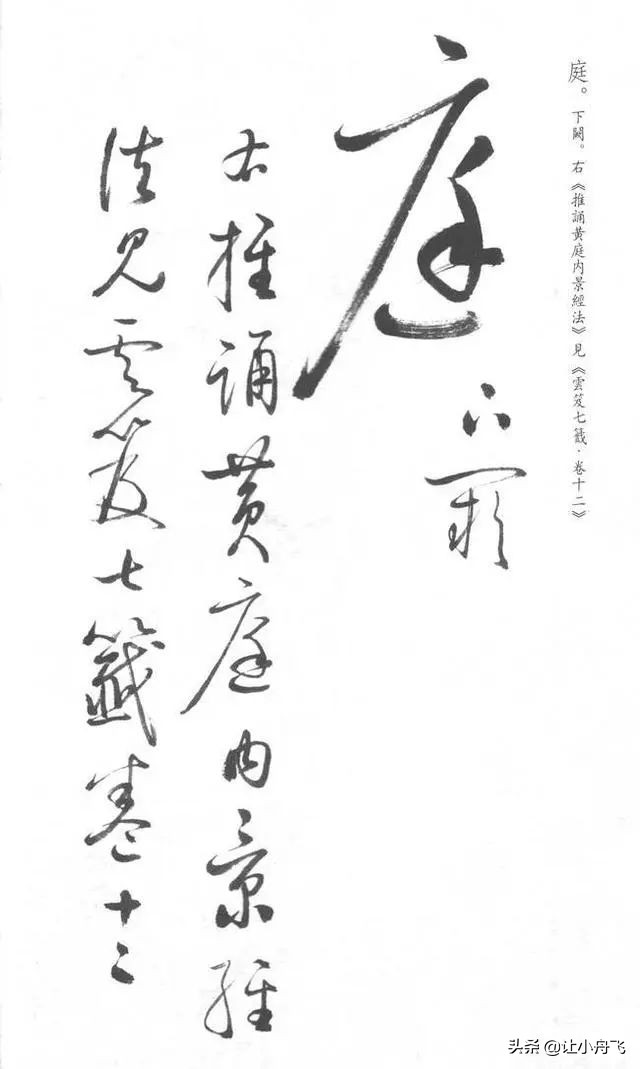 庭。下闕。右《推誦黄庭内景經法》見《雲笈七籤·卷十二》
庭
下闕
右推誦黄庭内景經
法見雲笈七籤卷十二
头条 @让小舟飞